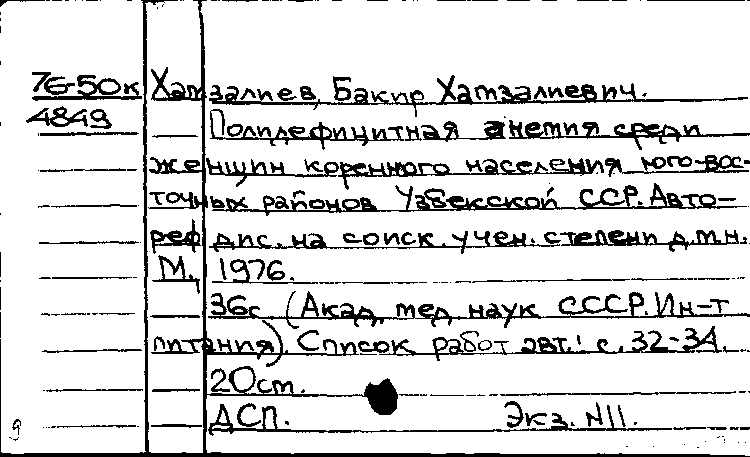 76-50к Хамзалиев, Бакир Хамзалиевич.
4849 Полидефицитная анемия среди
женщин коренного населения юго-вос-
точных районов Узбекской ССР. Авто-
реф дис. на соиск. учен. степени д.м.н.
М., 1976.
36с (Акад. мед наук СССР. Ин-т
питания). Список работ авт.: с. 32-34.
20ст.
ДСП. Экз. N11.
9